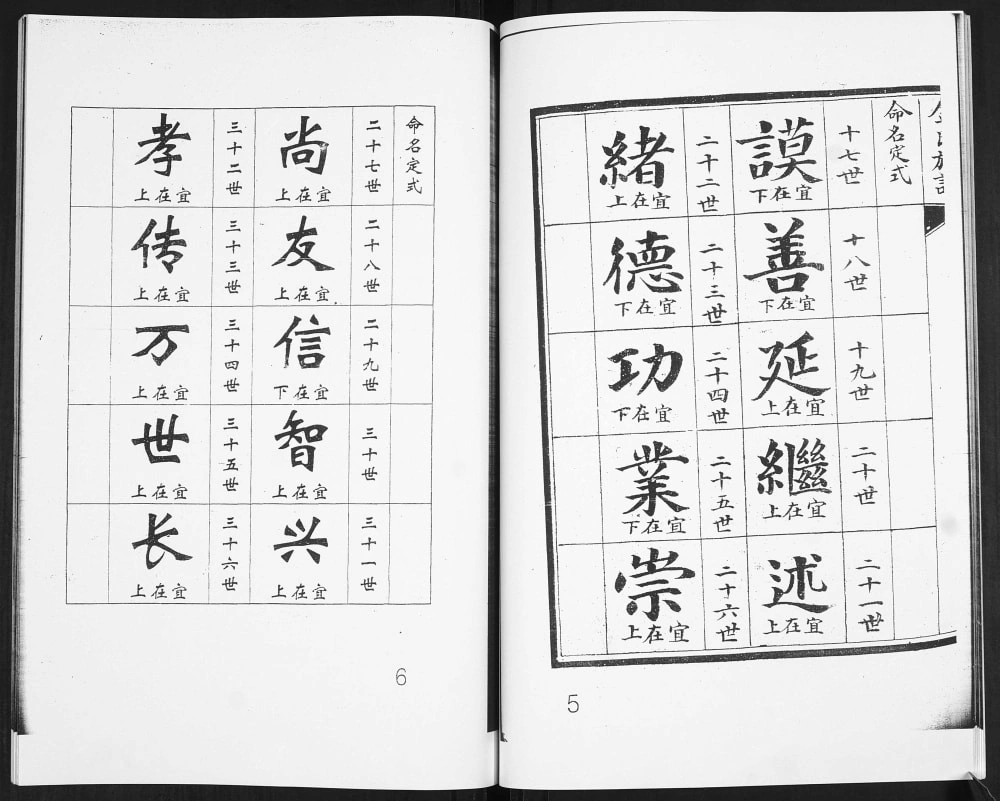 命名定式
十七世
謨
宜在下
十八世
善
宜在下
十九世
延
宜在上
二十世
繼
宜在上
二十一世
述
宜在上
二十二世
緒
宜在上
二十三世
德
宜在下
二十四世
功
宜在下
二十五世
業
宜在下
二十六世
崇
宜在上
5
命名定式
二十七世
尚
宜在上
二十八世
友
宜在上
二十九世
信
宜在下
三十世
智
宜在上
三十一世
兴
宜在上
三十二世
孝
宜在上
三十三世
传
宜在上
三十四世
万
宜在上
三十五世
世
宜在上
三十六世
长
宜在上
6